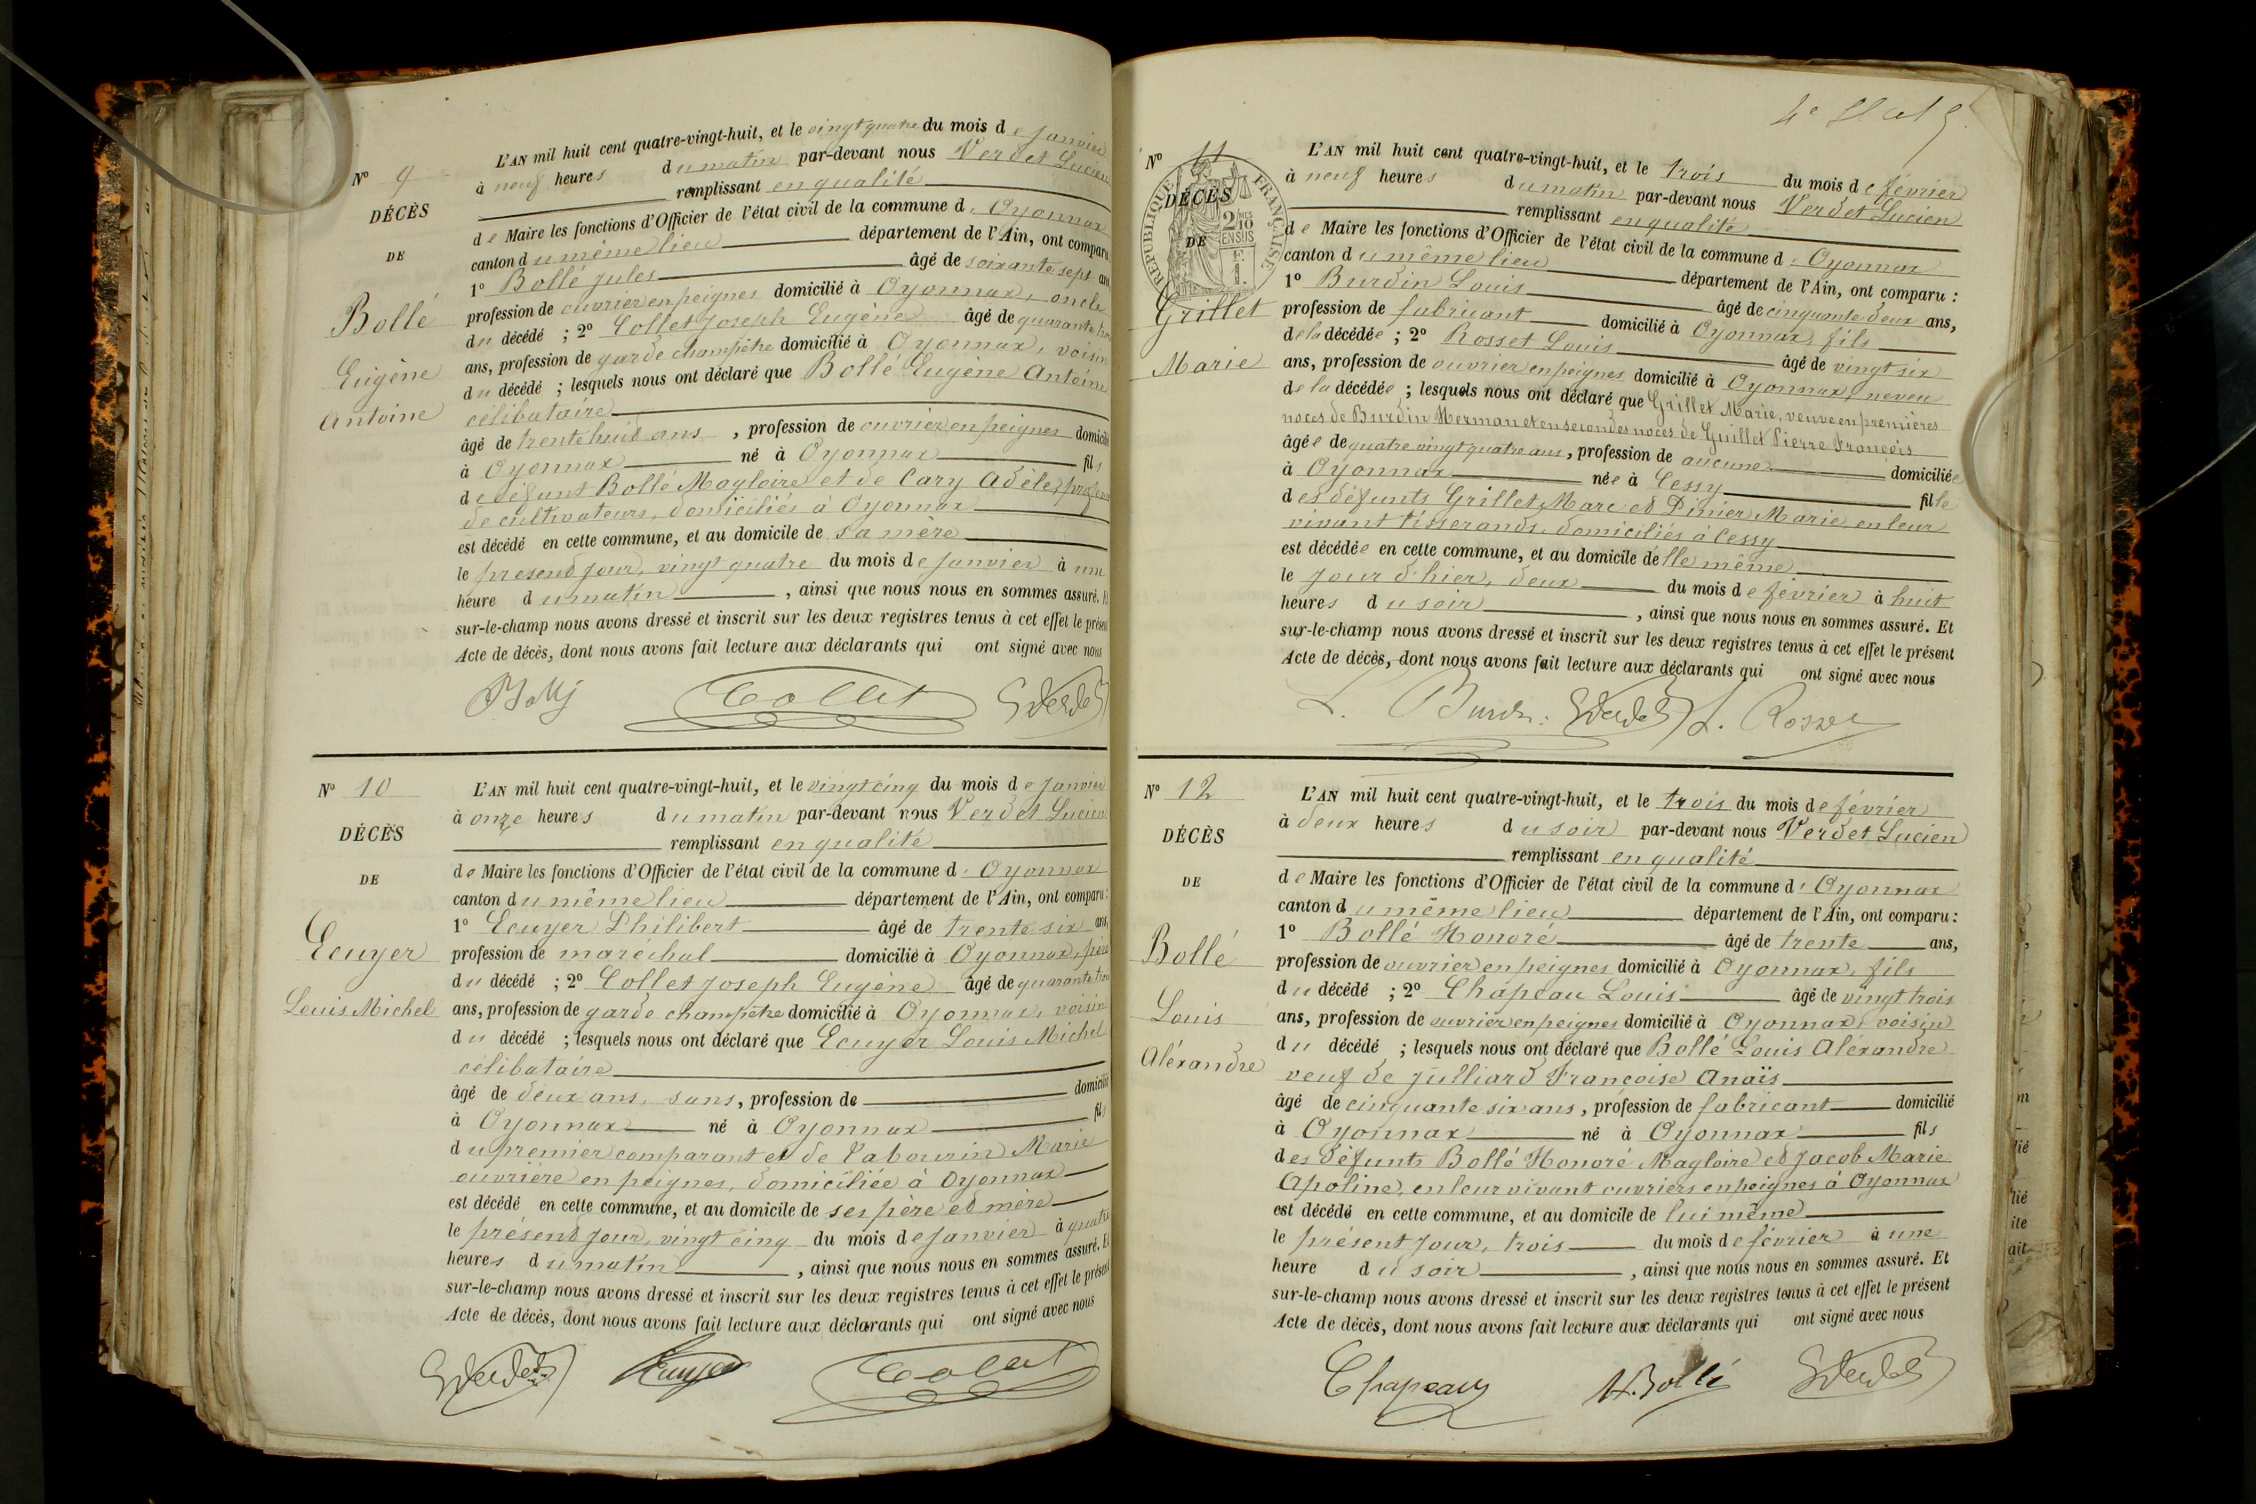 N° 9
DÉCÈS
DE
Bollé
Eugène
Antoine
L'AN mil huit cent quatre-vingt-huit, et le vingt quatre du mois de janvier
à neuf heures du matin par-devant nous Verdet Lucien
remplissant en qualité
de Maire les fonctions d'Officier de l'état civil de la commune d'Oyonnax
canton du même lieu département de l'Ain, ont comparu
1° Bollé Jules âgé de soixante sept ans
profession de ouvrier en peignes domicilié à Oyonnax, oncle
du décédé ; 2° Collet Joseph Eugène âgé de quarante trois
ans, profession de garde champêtre domicilié à Oyonnax, voisin
du décédé ; lesquels nous ont déclaré que Bollé Eugène Antoine
célibataire
âgé de trente huit ans, profession de ouvrier en peignes domicilié
à Oyonnax né à Oyonnax fils
de défunt Bollé Magloire et de Cary Adèle,
de cultivateurs, domiciliés à Oyonnax
est décédé en cette commune, et au domicile de sa mère
le présent jour, vingt quatre du mois de janvier à une
heure du matin, ainsi que nous nous en sommes assuré. Et
sur-le-champ nous avons dressé et inscrit sur les deux registres tenus à cet effet le présent
Acte de décès, dont nous avons fait lecture aux déclarants qui ont signé avec nous
Collet
N° 10
DÉCÈS
DE
Ecuyer
Louis Michel
L'AN mil huit cent quatre-vingt-huit, et le vingt cinq du mois de janvier
à onze heures du matin par-devant nous Verdet Lucien
remplissant en qualité
de Maire les fonctions d'Officier de l'état civil de la commune d'Oyonnax
canton du même lieu département de l'Ain, ont comparu :
1° Ecuyer Philibert âgé de trente six ans,
profession de maréchal domicilié à Oyonnax, père
du décédé ; 2° Collet Joseph Eugène âgé de quarante trois
ans, profession de garde champêtre domicilié à Oyonnax, voisin
du décédé ; lesquels nous ont déclaré que Ecuyer Louis Michel
célibataire
âgé de deux ans, sans, profession de domicilié
à Oyonnax né à Oyonnax fils
du premier comparant et de Tabourin Marie
ouvrière en peignes, domiciliée à Oyonnax
est décédé en cette commune, et au domicile de ses père et mère
le présent jour, vingt cinq du mois de janvier à quatre
heures du matin, ainsi que nous nous en sommes assuré. Et
sur-le-champ nous avons dressé et inscrit sur les deux registres tenus à cet effet le présent
Acte de décès, dont nous avons fait lecture aux déclarants qui ont signé avec nous
Verdet Ecuyer Collet
N° 11
DÉCÈS
DE
RÉPUBLIQUE FRANÇAISE
Grillet
Marie
L'AN mil huit cent quatre-vingt-huit, et le trois du mois de février
à neuf heures du matin par-devant nous Verdet Lucien
remplissant en qualité
de Maire les fonctions d'Officier de l'état civil de la commune d'Oyonnax
canton du même lieu département de l'Ain, ont comparu :
1° Burdin Louis âgé de cinquante deux ans,
profession de fabricant domicilié à Oyonnax, fils
de la décédée ; 2° Rosset Louis âgé de vingt six
ans, profession de ouvrier en peignes domicilié à Oyonnax, neveu
de la décédée ; lesquels nous ont déclaré que Grillet Marie, veuve en premières
noces de Burdin Herman et en secondes noces de Guillet Pierre François
âgée de quatre vingt quatre ans, profession de aucune domiciliée
à Oyonnax née à Cessy fille
des défunts Grillet Marc et Dinier Marie en leur
vivant tisserands, domiciliés à Cessy
est décédée en cette commune, et au domicile d'elle même
le jour d'hier, deux du mois de février à huit
heures du soir, ainsi que nous nous en sommes assuré. Et
sur-le-champ nous avons dressé et inscrit sur les deux registres tenus à cet effet le présent
Acte de décès, dont nous avons fait lecture aux déclarants qui ont signé avec nous
L. Burdin Verdet L. Rosset
N° 12
DÉCÈS
DE
Bollé
Louis
Aléxandre
L'AN mil huit cent quatre-vingt-huit, et le trois du mois de février
à deux heures du soir par-devant nous Verdet Lucien
remplissant en qualité
de Maire les fonctions d'Officier de l'état civil de la commune d'Oyonnax
canton du même lieu département de l'Ain, ont comparu :
1° Bollé Honoré âgé de trente ans,
profession de ouvrier en peignes domicilié à Oyonnax, fils
du décédé ; 2° Chapeau Louis âgé de vingt trois
ans, profession de ouvrier en peignes domicilié à Oyonnax, voisin
du décédé ; lesquels nous ont déclaré que Bollé Louis Aléxandre
veuf de Julliard Françoise Anaïs
âgé de cinquante six ans, profession de fabricant domicilié
à Oyonnax né à Oyonnax fils
des défunts Bollé Honoré Magloire et Jacob Marie
Apoline, en leur vivant ouvriers en peignes à Oyonnax
est décédé en cette commune, et au domicile de lui même
le présent jour, trois du mois de février à une
heure du soir, ainsi que nous nous en sommes assuré. Et
sur-le-champ nous avons dressé et inscrit sur les deux registres tenus à cet effet le présent
Acte de décès, dont nous avons fait lecture aux déclarants qui ont signé avec nous
Chapeau H. Bollé Verdet